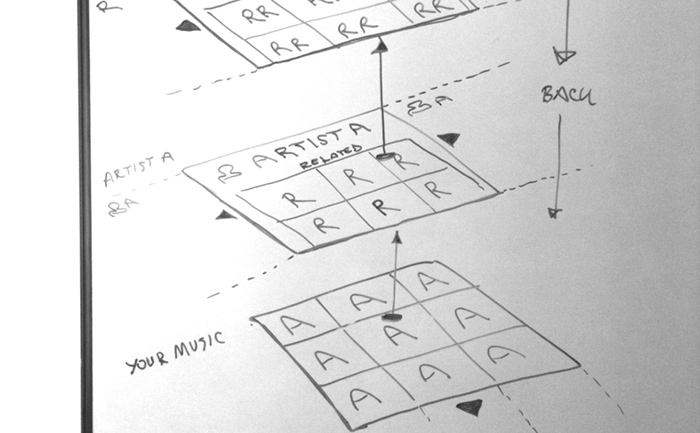 R
RR R RR
RR RR RR
BACK
A
ARTIST A
ARTIST A
RELATED
R R R
R R R
A
A A A
YOUR MUSIC
A A A
A A A